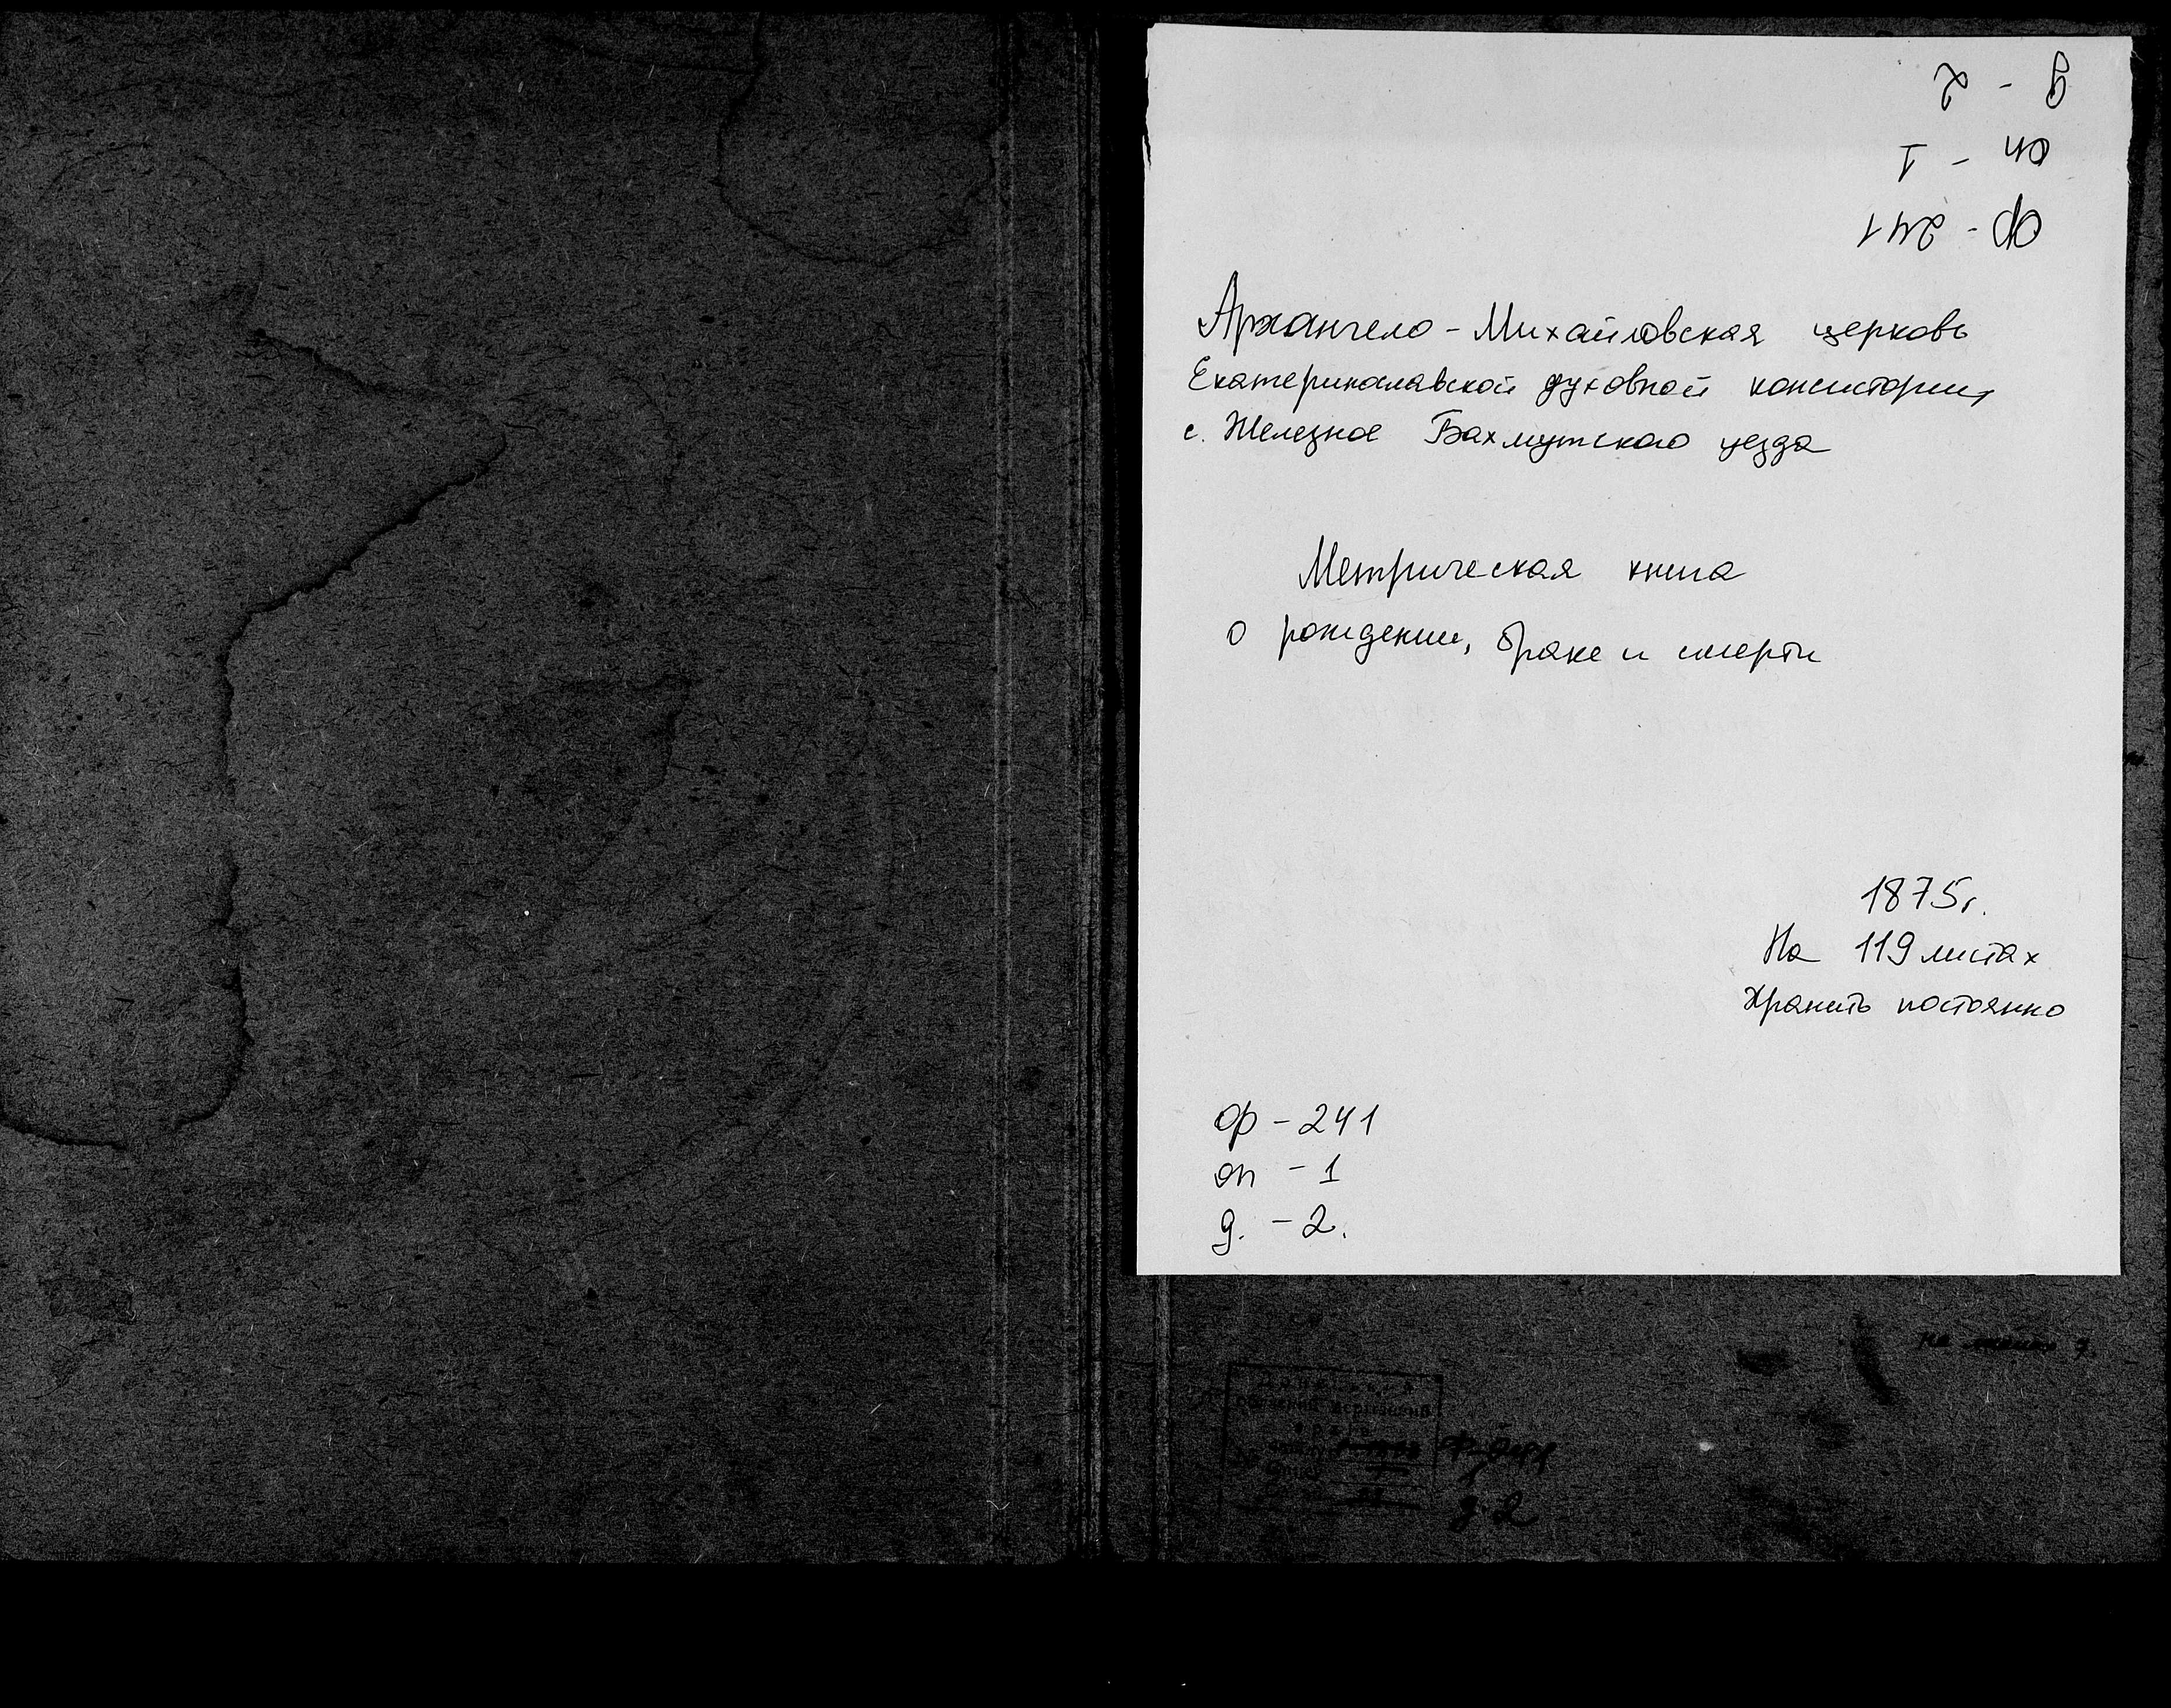 д - 2
оп - 1
ф - 241
Архангело - Михайловская церковь
Екатеринославской духовной консистории,
с. Железное Бахмутского уезда
Метрическая книга
о рождении, браке и смерти
1875г.
На 119 листах
Хранить постоянно
ф - 241
оп - 1
д. - 2.
д. 2